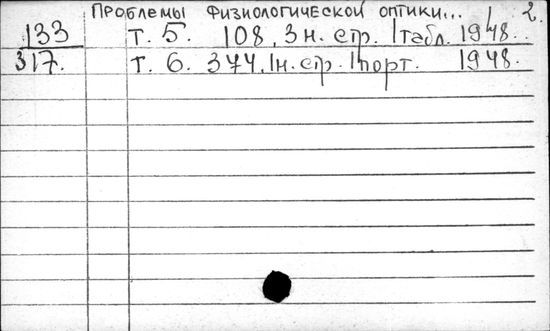 Проблемы физиологической оптики... 2.
133 т. 5. 108, 3 н. стр. 1 табл. 1948.
317. т. 6. 374, 1 н. стр. 1 порт. 1948.